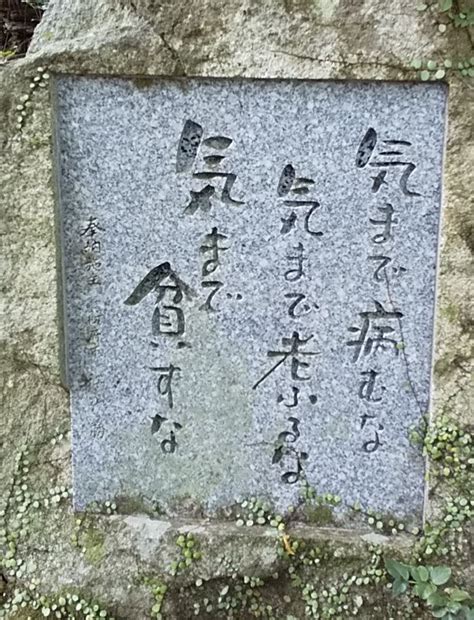 気まで病むな
気まで老ふるな
気まで貧すな
奉納